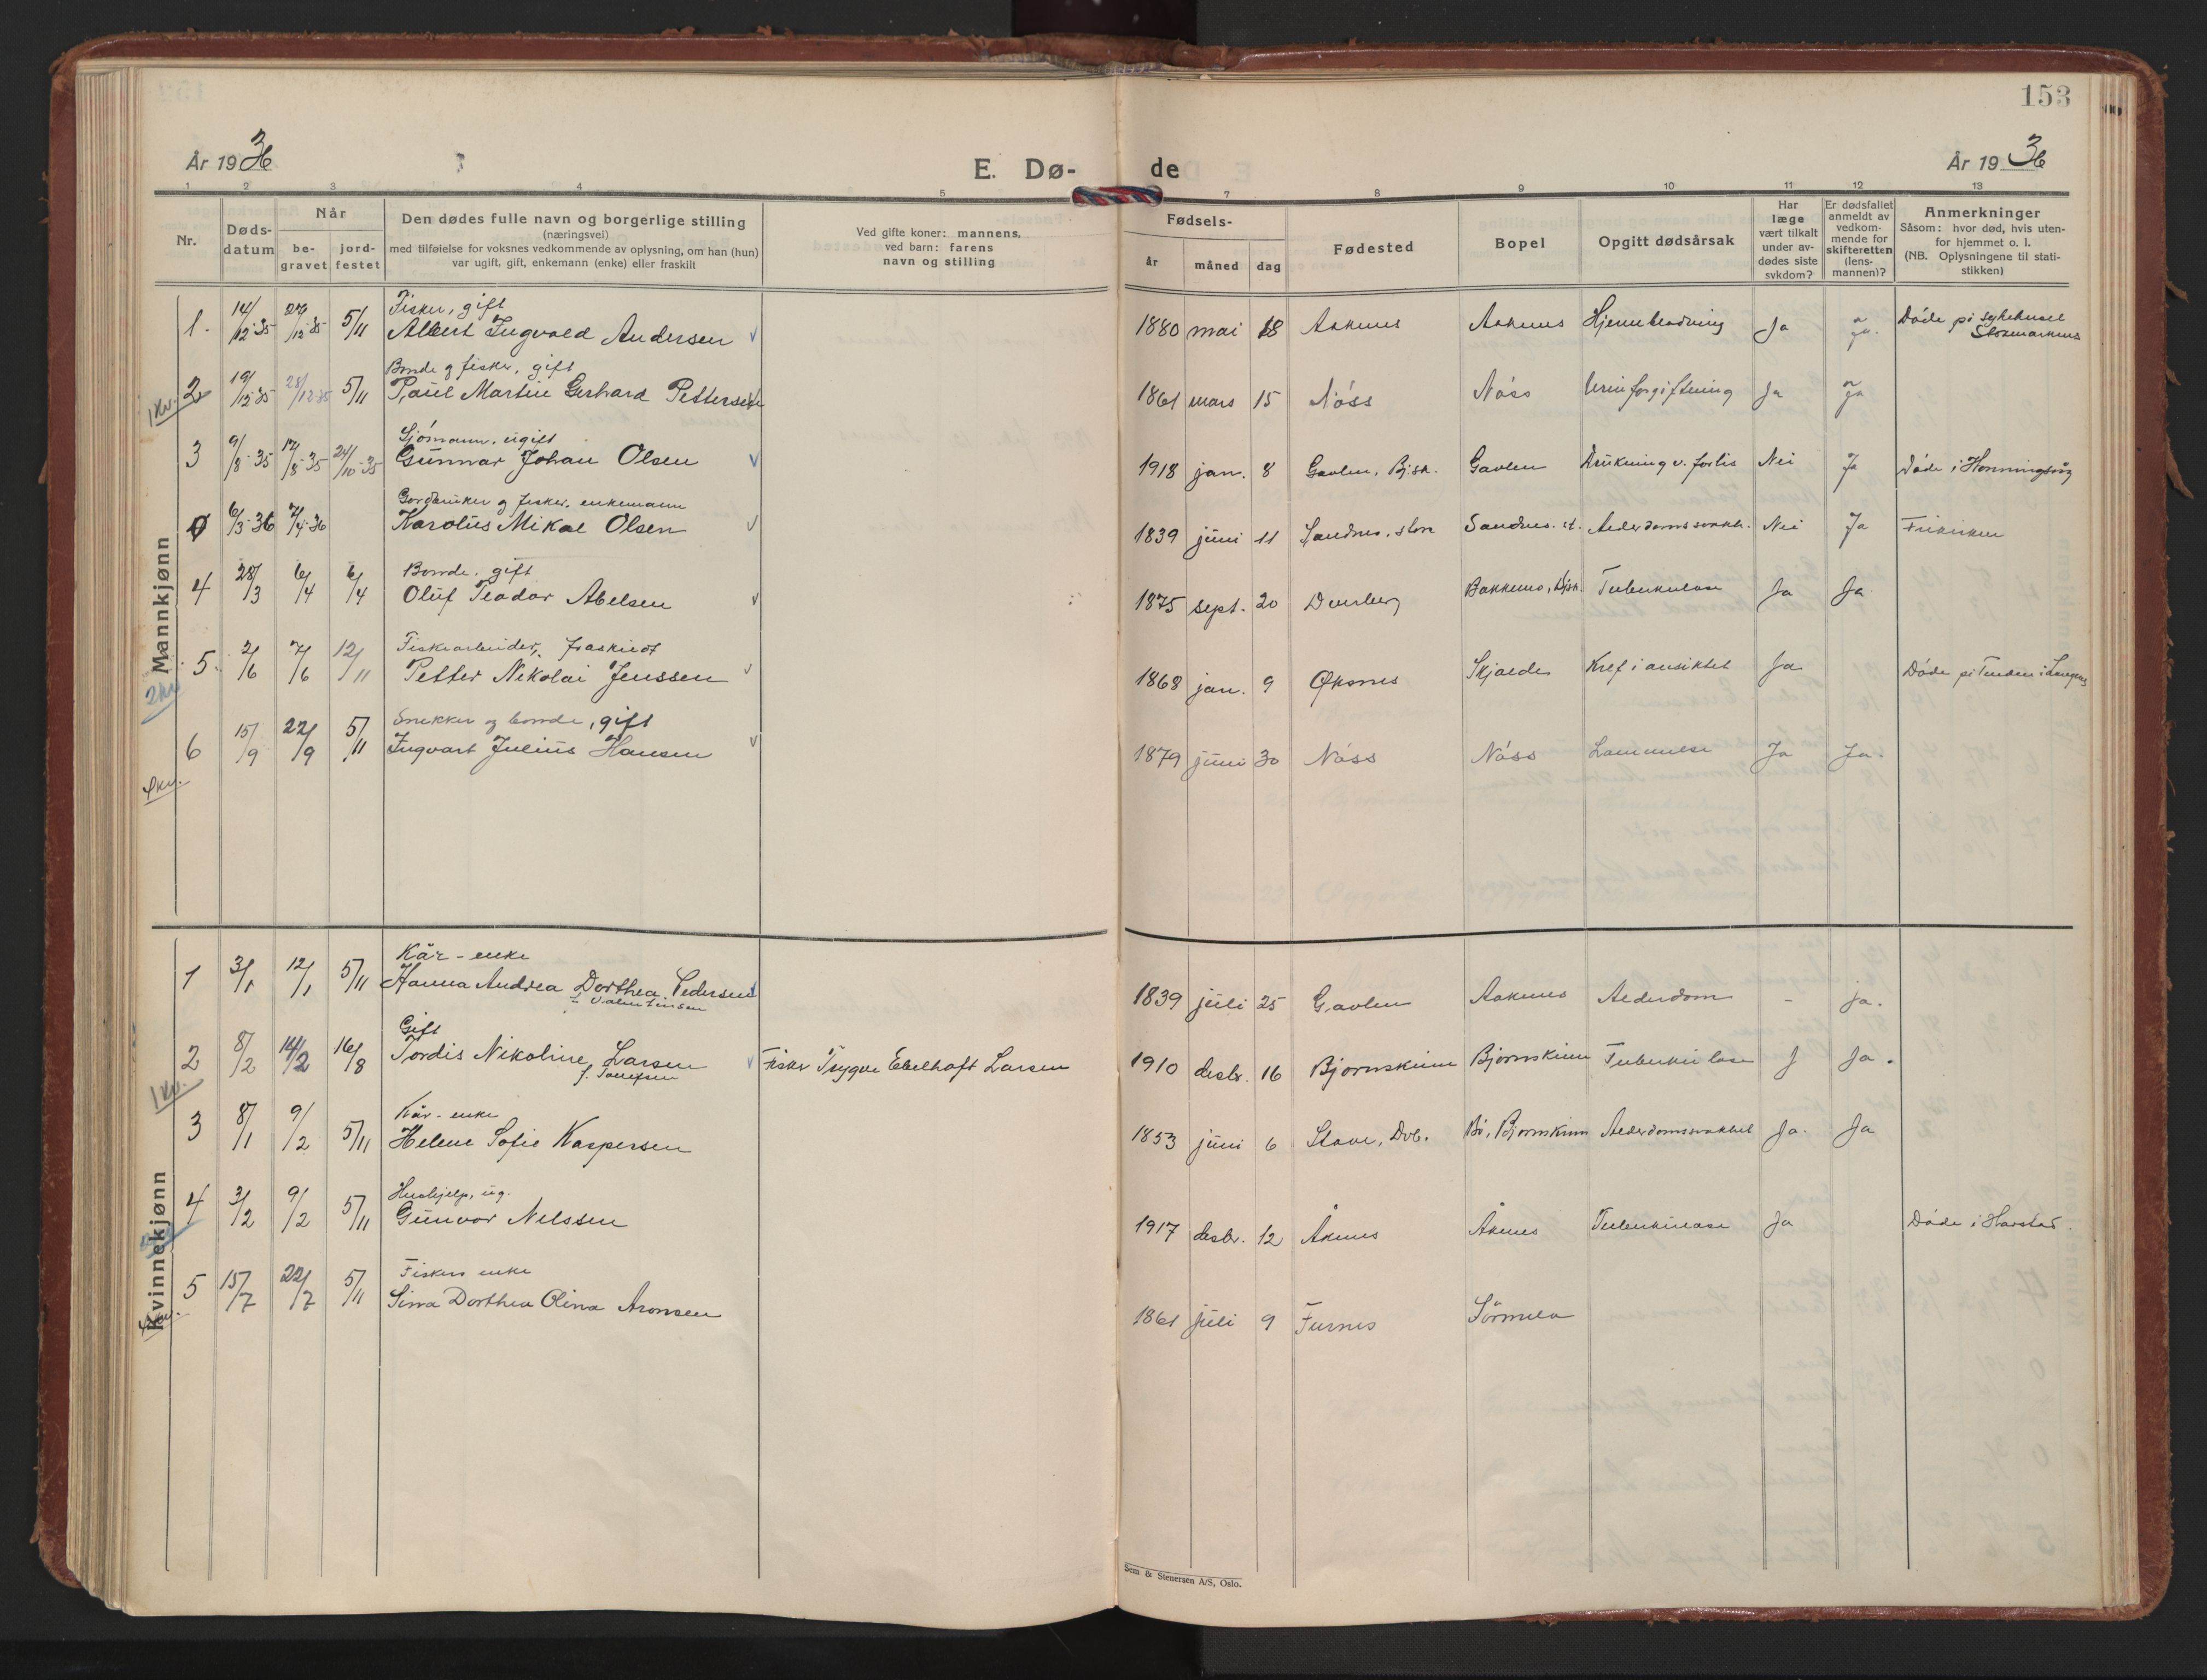 153
År 1936
E. Dø-
de
År 1936
1 2 3 4 5 7 8 9 10 11 12 13
Nr.
Døds-
datum
Når
be-
gravet
jord-
festet
Den dødes fulle navn og borgerlige stilling
(næringsvei)
med tilføielse for voksnes vedkommende av oplysning, om han (hun)
var ugift, gift, enkemann (enke) eller fraskilt
Ved gifte koner: mannens,
ved barn: farens
navn og stilling
Fødsels-
år måned dag
Fødested
Bopel
Opgitt dødsårsak
Har
læge
vært tilkalt
under av-
dødes siste
sykdom?
Er dødsfallet
anmeldt av
vedkom-
mende for
skifteretten
(lens-
mannen)?
Anmerkninger
Såsom: hvor død, hvis uten-
for hjemmet o. l.
(NB. Oplysningene til stati-
stikken)
Mannkjønn
Fisker, gift
1. 14/12-35 27/12-35 5/11 Albert Ingvald Andersen 1880 mai 18 Aaknes Aaknes Hjerneblødning Ja ja. Døde på sykehuset
Stokmarknes
Bonde og fisker, gift
1 kv. 2 19/12-35 28/12-35 5/11 Paul Martin Gerhard Pettersen 1861 mars 15 Nöss Nöss Urinforgiftning Ja Ja
Sjömann, ugift
3 9/8-35 17/8-35 24/10-35 Gunnar Johan Olsen 1918 jan. 8 Gavlen, Bjsk. Gavlen Drukning v. forlis Nei Ja Døde i Honningsvåg
Gårdbruker og fisker, enkemann
0 6/3-36 7/4-36 Karolus Mikal Olsen 1839 juni 11 Sandnes, Sandnes. Alderdomssvakh. Nei Ja Frikirken
Bonde, gift
4 28/3 6/4 6/4 Oluf Teodor Abelsen 1875 sept. 20 Dverberg Bakkemo, Bjsk. Tuberkulose Ja Ja
Fiskearbeider, fraskilt
5 2/6 7/6 12/11 Petter Nikolai Jenssen 1868 jan. 9 Øksnes Skjolde Kref i ansiktet Ja Døde på Tenden i Langenes
2 kv
Snekker og bonde, gift
6 15/9 22/9 5/11 Ingvart Julius Hansen 1879 juni 30 Nöss Nöss Lammelse Ja Ja.
Kvinnekjønn
Kår-enke
1 3/1 12/1 5/11 Hanna Andrea Dorthea Pedersen 1839 juli 25 Gavlen Aaknes Alderdom - ja.
f. Valentinsen
Gift
2 8/2 14/2 16/8 Tordis Nikoline Larsen Fisker Trygve Ebelhoft Larsen 1910 desbr. 16 Bjørnskinn Bjørnskinn Tuberkulose J Ja.
1 kv.
Kår-enke
3 8/1 9/2 5/11 Helene Sofie Kaspersen 1853 juni 6 Stave, Dvb. Bö, Bjørnskinn Alderdomssvakhet Ja. Ja
Hushjelp, ug.
4 3/2 9/2 5/11 Gunvor Nilssen 1917 desbr. 12 Åknes Åknes Tuberkulose Ja Døde i Harstad.
Fiskers enke
5 15/7 22/7 5/11 Sina Dorthea Olina Aronsen 1861 juli 9 Furnes Sörmela
Sem & Stenersen A/S, Oslo.